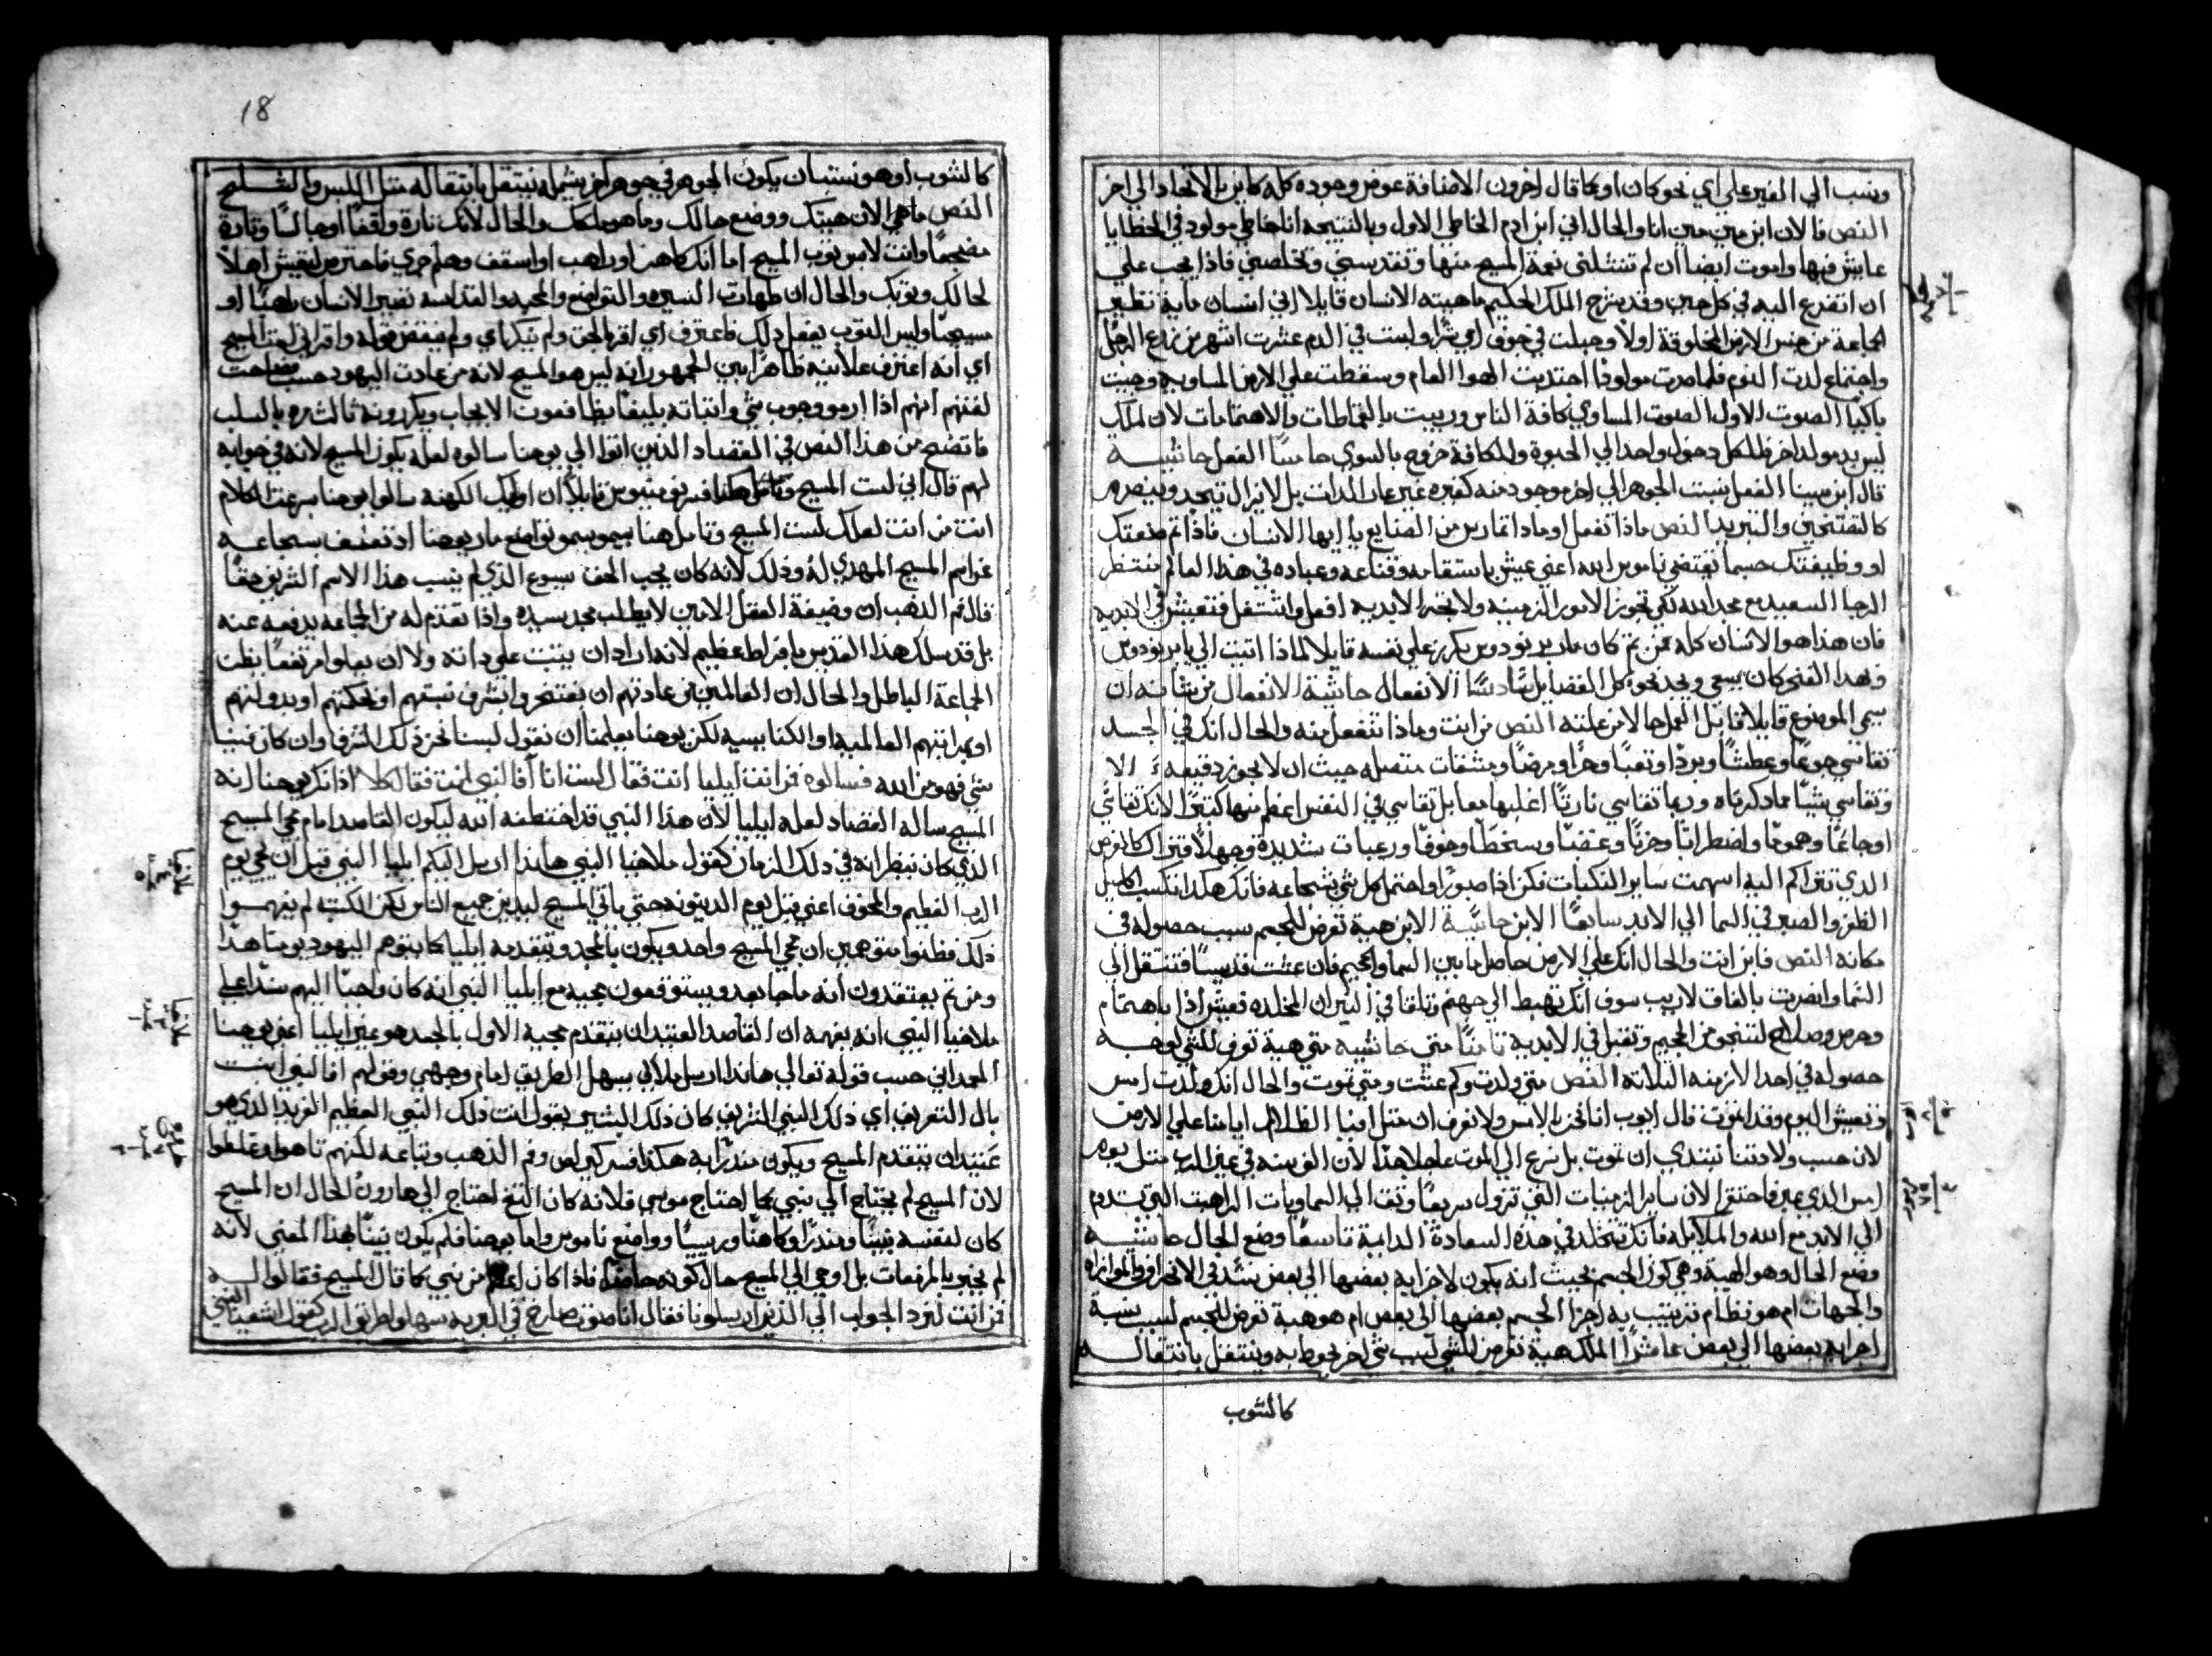 ونسب الي الغير علي اي نحو كان او كما قال اخرون الاضافة عرض وجوده كله كاين بالاتحاد الي اخر
النص فالان ابن من انا والحال اني ابن ادم الخاطي الاول وبالنتيجه انا خاطي مولود في الخطايا
عايش فيها واموت ايضا ان لم تنتشلني نعمة المسيح منها وتقدسني وتخلصني فاذا يجب علي
ان اتضرع اليه في كل حين وقد شرح الملك الحكيم ماهيته الانسان قايلا اني انسان مايت نظير
الجماعة من جنس الارض المخلوقة اولا وجبلت في جوف امي بشرا ولبثت في الدم عشرت اشهر من زرع الرجل
واجتماع لدت النوم فلما صرت مولودا اجتذبت الهوا العام وسقطت علي الارض المساويه وجيت
باكيا الصوت الاول الصوت المساوي كافة الناس وربيت بالقماطات والاهتمامات لان لملك
ليس بدو مولد اخر فللكل دخول واحد الي الحيوة وللكافة خروج بالسوي خامسا الفعل حاشيه
قال ابن سينا الفعل نسبت الجوهر الي اخر موجود منه كغيره غير قار الذات بل لا يزال يتجدد ويتصرم
كالتسخين والتبريد النص ماذا تفعل او ماذا تمارس من الصنايع يا ايها الانسان فاذا تم صنعتك
او وظيفتك حسبما تقتضي ناموس الله اعني عيش باستقامه وقناعه وعباده في هذا العالم منتظر
الرجا السعيد مع مجد الله لكي تجوز الامور الزمنيه ولا تخسر الابديه افعل واشتغل فتعيش في الابديه
فان هذا هو الانسان كله فمن ثم كان مار برنردوس يكرر علي نفسه قايلا لماذا اتيت الي يا برنردوس
وبهذا الفكر كان يسعي ويجد نحو كل الفضايل سادسا الانفعال حاشية الانفعال من شانه ان
يسمي الموضوع قابلا قابل العمل حالا من علته النص من انت وماذا تنفعل منه والحال انك في الجسد
تقاسي جوعا وعطشا وبردا وتعبا وحرا ومرضا ومشقات متصله حيث ان لا يجوز دقيقه الا
وتقاسي شيا مما ذكرناه وربما تقاسي تارتا اغلبها معا بل تقاسي في النفس اعظم منها كثيرا لانك تقاسي
اوجاعا وهموما واضطرابا وحزنا وغضبا وسخطا وخوفا ورعبات شديده وجهلا
الذي تتراكم اليه اسهمت ساير النكبات فكن اذا صبورا واحتمل كل شي بشجاعه فانك هكذا تكسب اكليل
الظفر والصبر في السما الي الابد سابعا الاين حاشية الاين هيية تعرض للجسم بسبب حصوله في
مكانه النص فاين انت والحال انك علي الارض حاصل ما بين السما والجحيم فان عشت قديسا فتنتقل الي
السما وان صرت بالنفاق لا ريب سوف انك تهبط الي جهنم وتلقا في النيران المخلده فعيش اذا باهتمام
وحرص وصلاح لتنجو من الجحيم وتقبل في الابدية ثامنا متي حاشيه متي هيية تعرض للشي لوجه
حصوله في احد الازمنه الثلاثه النص متي ولدت وكم عشت ومتي تموت والحال انك ولدت امس
وتعيش اليوم وغدا تموت قال ايوب انا نحن الامس ولا نعرف ان مثل افيا الظلال ايامنا علي الارض
لان حسب ولادتنا نبتدي ان نموت بل نسرع الي الموت عاجلا هذا لان الف سنه في عين الرب مثل يوم
امس الذي عبر فاحتقر الان ساير الزمنيات التي تزول سريعا وتق الي السماويات الراهنت التي تدوم
الي الابد مع الله والملايكه فانك تتخلد في هذه السعادة الدايمة تاسعا وضع الحال حاشيه
وضع الحال وهو الهيية وهي كون الجسم بحيث انه يكون لاجزايه بعضها الي بعض نسبة في الانحراف والموازاه
والجهات ام هو نظام ترتيب به اجزا الجسم بعضها الي بعض ام هو هيية تعرض للجسم بسبب نسبة
اجزايه بعضها الي بعض عاشرا الملك هيية تعرض للشي بسبب شي اخر يحوط به وينتقل بانتقاله
كالثوب
18
كالثوب او هو نسبتا ن يكون الجوهر في جوهر اخر يشمله ينتقل بانتقاله مثل اللبس والتسليح
النص ماهي الان هيتك ووضع حالك وما هو ملكك والحال لانك تارة واقفا او جالسا وتارة
مضجعا وانت لابس ثوب المسيح اما انك كاهن او راهب او اسقف وهلم جري فاحترس لتعيش اهلا
لحالك وثوبك والحال ان طهارت السيره والتواضع والمحبه والقداسه تصير الانسان راهبا او
مسيحيا وليس الثوب يفعل ذلك فاعترف اي اقر بالحق ولم ينكر اي ولم ينقض قوله واقر اني لست المسيح
اي انه اعترف علانيه ظاهرا بين الجمهور انه ليس هو المسيح لانه من عادت اليهود حسب فصاحت
لغتهم انهم اذا ارموا وجوب شي واثباته بليغا يضاعفون الايجاب ويكررونه ثالث مره بالسلب
فاتضح من هذا النص في القصاد الذين اتوا الي يوحنا سالوه لعله يكون المسيح لانه في جوابه
لهم قال اني لست المسيح وتامل هكذا فسر توفيتوس قايلا ان اوليك الكهنه سالوا يوحنا برعت الكلام
انت من انت لعلك لست المسيح وتامل هنا سمو تواضع مار يوحنا اذ تعفف بشجاعه
عن اسم المسيح المهدي له وذلك لانه كان يحب الحق يسوع الذي لم ينسب هذا الاسم الشريف حقا
قال فم الذهب ان وضيفة العقل الامين لا يطلب مجد سيده واذا تقدم له من الجماعه يدفعه عنه
بل قد سلك هذا القديس بافراط عظيم لانه اراد ان يثبت علي ذاته ولا ان يعلوا مرتفعا بظن
الجماعة الباطل والحال ان العالمين من عادتهم ان يفتخروا بشرف نسبتهم او بحكمتهم او بدولتهم
او بمراتبهم العالمية او الكنايسيه لكن يوحنا يعلمنا ان نقول لسنا نحن ذلك الشرفا وان كان فينا
شي فهو من الله فسالوه فمن انت ايليا انت فقال لست انا افالنبي انت فقال كلا اذا نكر يوحنا انه
المسيح ساله القصاد لعله ايليا لان هذا النبي قد اختطفه الله ليكون القاصد امام مجي المسيح
الذي كان ينتظر انه في ذلك الزمان كقول ملاخيا النبي هانذا ارسل اليكم ايليا النبي قبل ان يجي يوم
الرب العظيم والمخوف اعني قبل يوم الدينونه حتي ياتي المسيح ليدين جميع الناس لكن الكتبه لم يفهموا
ذلك فظنوا متوهمين ان مجي المسيح واحد ويكون بالمجد ويتقدمه ايليا كما يتوهم اليهود يومنا هذا
ومن ثم يعتقدون انه ما جا بعد ويستوقعون مجيه مع ايليا النبي انه كان واجبا اليهم
ملاخيا النبي انه يفهمه ان القاصد العتيد ان يتقدم مجيه الاول بالجسد هو غير ايليا اعني يوحنا
المعمداني حسب قوله تعالي هانذا ارسل ملاكي يسهل الطريق امام وجهي وقولهم افالنبي انت
بال التعريف اي ذلك النبي الشريف كان ذلك البشير يقول انت ذلك النبي العظيم الفريد الذي هو
عتيد ان يتقدم المسيح ويكون منذرا به هكذا فسر كيرلس وفم الذهب وتباعه لكنهم تاهوا وغلطوا
لان المسيح لم يحتاج الي نبي كما احتاج موسي فلانه كان التغ احتاج الي هارون الحال ان المسيح
كان لنفسه نبيا ومنذرا وكاهنا ورييسا وواضع ناموس واما يوحنا فلم يكون نبيا بهذا المعني لانه
لم يخبر بالمزمعات بل اوحي الي المسيح حال كونه حاضرا فاذا كان اعظم من نبي كما قال المسيح فقالوا له
فمن انت لنرد الجواب الي الذين ارسلونا فقال انا صوت صارخ في البريه سهلوا طريق الرب كقول اشعيا النبي